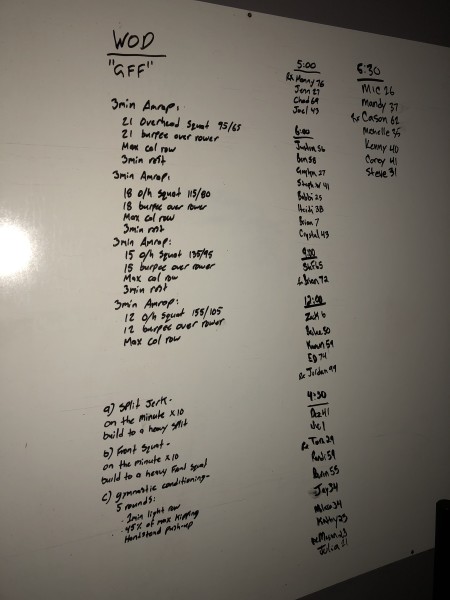 WOD
"GFF"
3min Amrap:
21 Overhead Squat 95/65
21 burpee over rower
Max cal row
3min rest
3min Amrap:
18 o/h squat 115/80
18 burpee over rower
Max cal row
3min rest
3min Amrap:
15 o/h squat 135/95
15 burpee over rower
Max cal row
3min rest
3min Amrap:
12 o/h squat 155/105
12 burpee over rower
Max cal row
a) Split Jerk -
on the minute x 10
build to a heavy split
b) Front Squat -
on the minute x 10
build to a heavy Front Squat
c) gymnastic conditioning -
5 rounds:
- 1min light row
- 45% of max kipping
Handstand push-up
5:00
Rx Manny 76
Jenn 27
Chad 69
Joel 43
6:00
56
58
27
41
Bobbi 25
Heidi 38
Brian 7
Crystal 43
65
Brian 72
12:00
Zach 6
50
59
ED 74
Rx Jordan 99
4:30
41
Rx Tom 29
59
55
Jay 34
34
Kathy 23
Julia 21
5:30
Mic 26
Mandy 37
Rx Cason 62
Michelle 35
Kenny 40
Corey 41
Steve 31